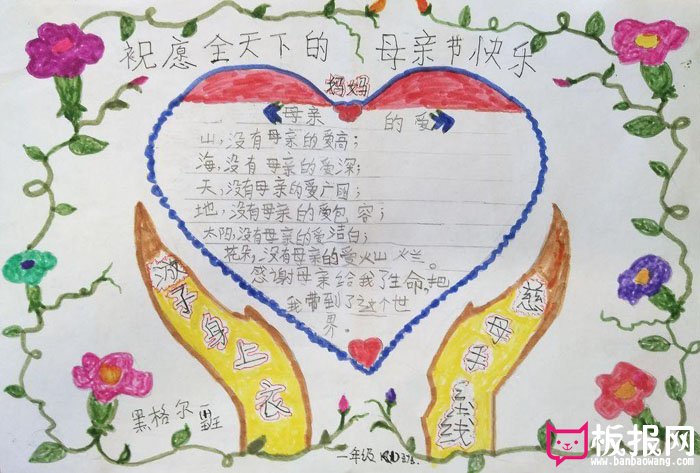 祝愿全天下的母亲节快乐
妈妈
母亲的爱
山，没有母亲的爱高；
海，没有母亲的爱深；
天，没有母亲的爱广阔；
地，没有母亲的爱包容；
太阳，没有母亲的爱洁白；
花朵，没有母亲的爱火山烂。
感谢母亲给我了生命，把
我带到了这个世
界。
游子身上衣
慈母手中线
黑格尔
一年级
板报网
www.banbaowang.com